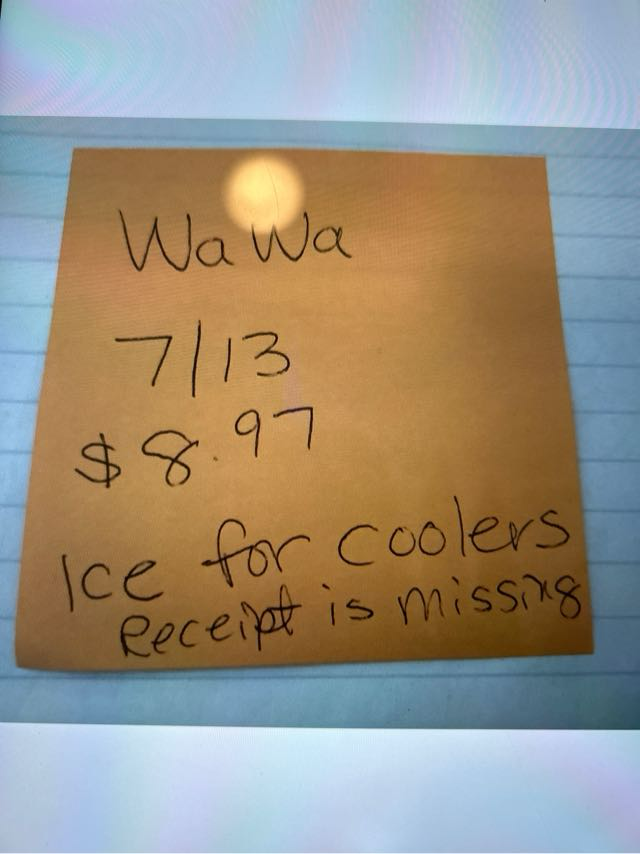 WaWa
7/13
$8.97
Ice for coolers
Receipt is missing